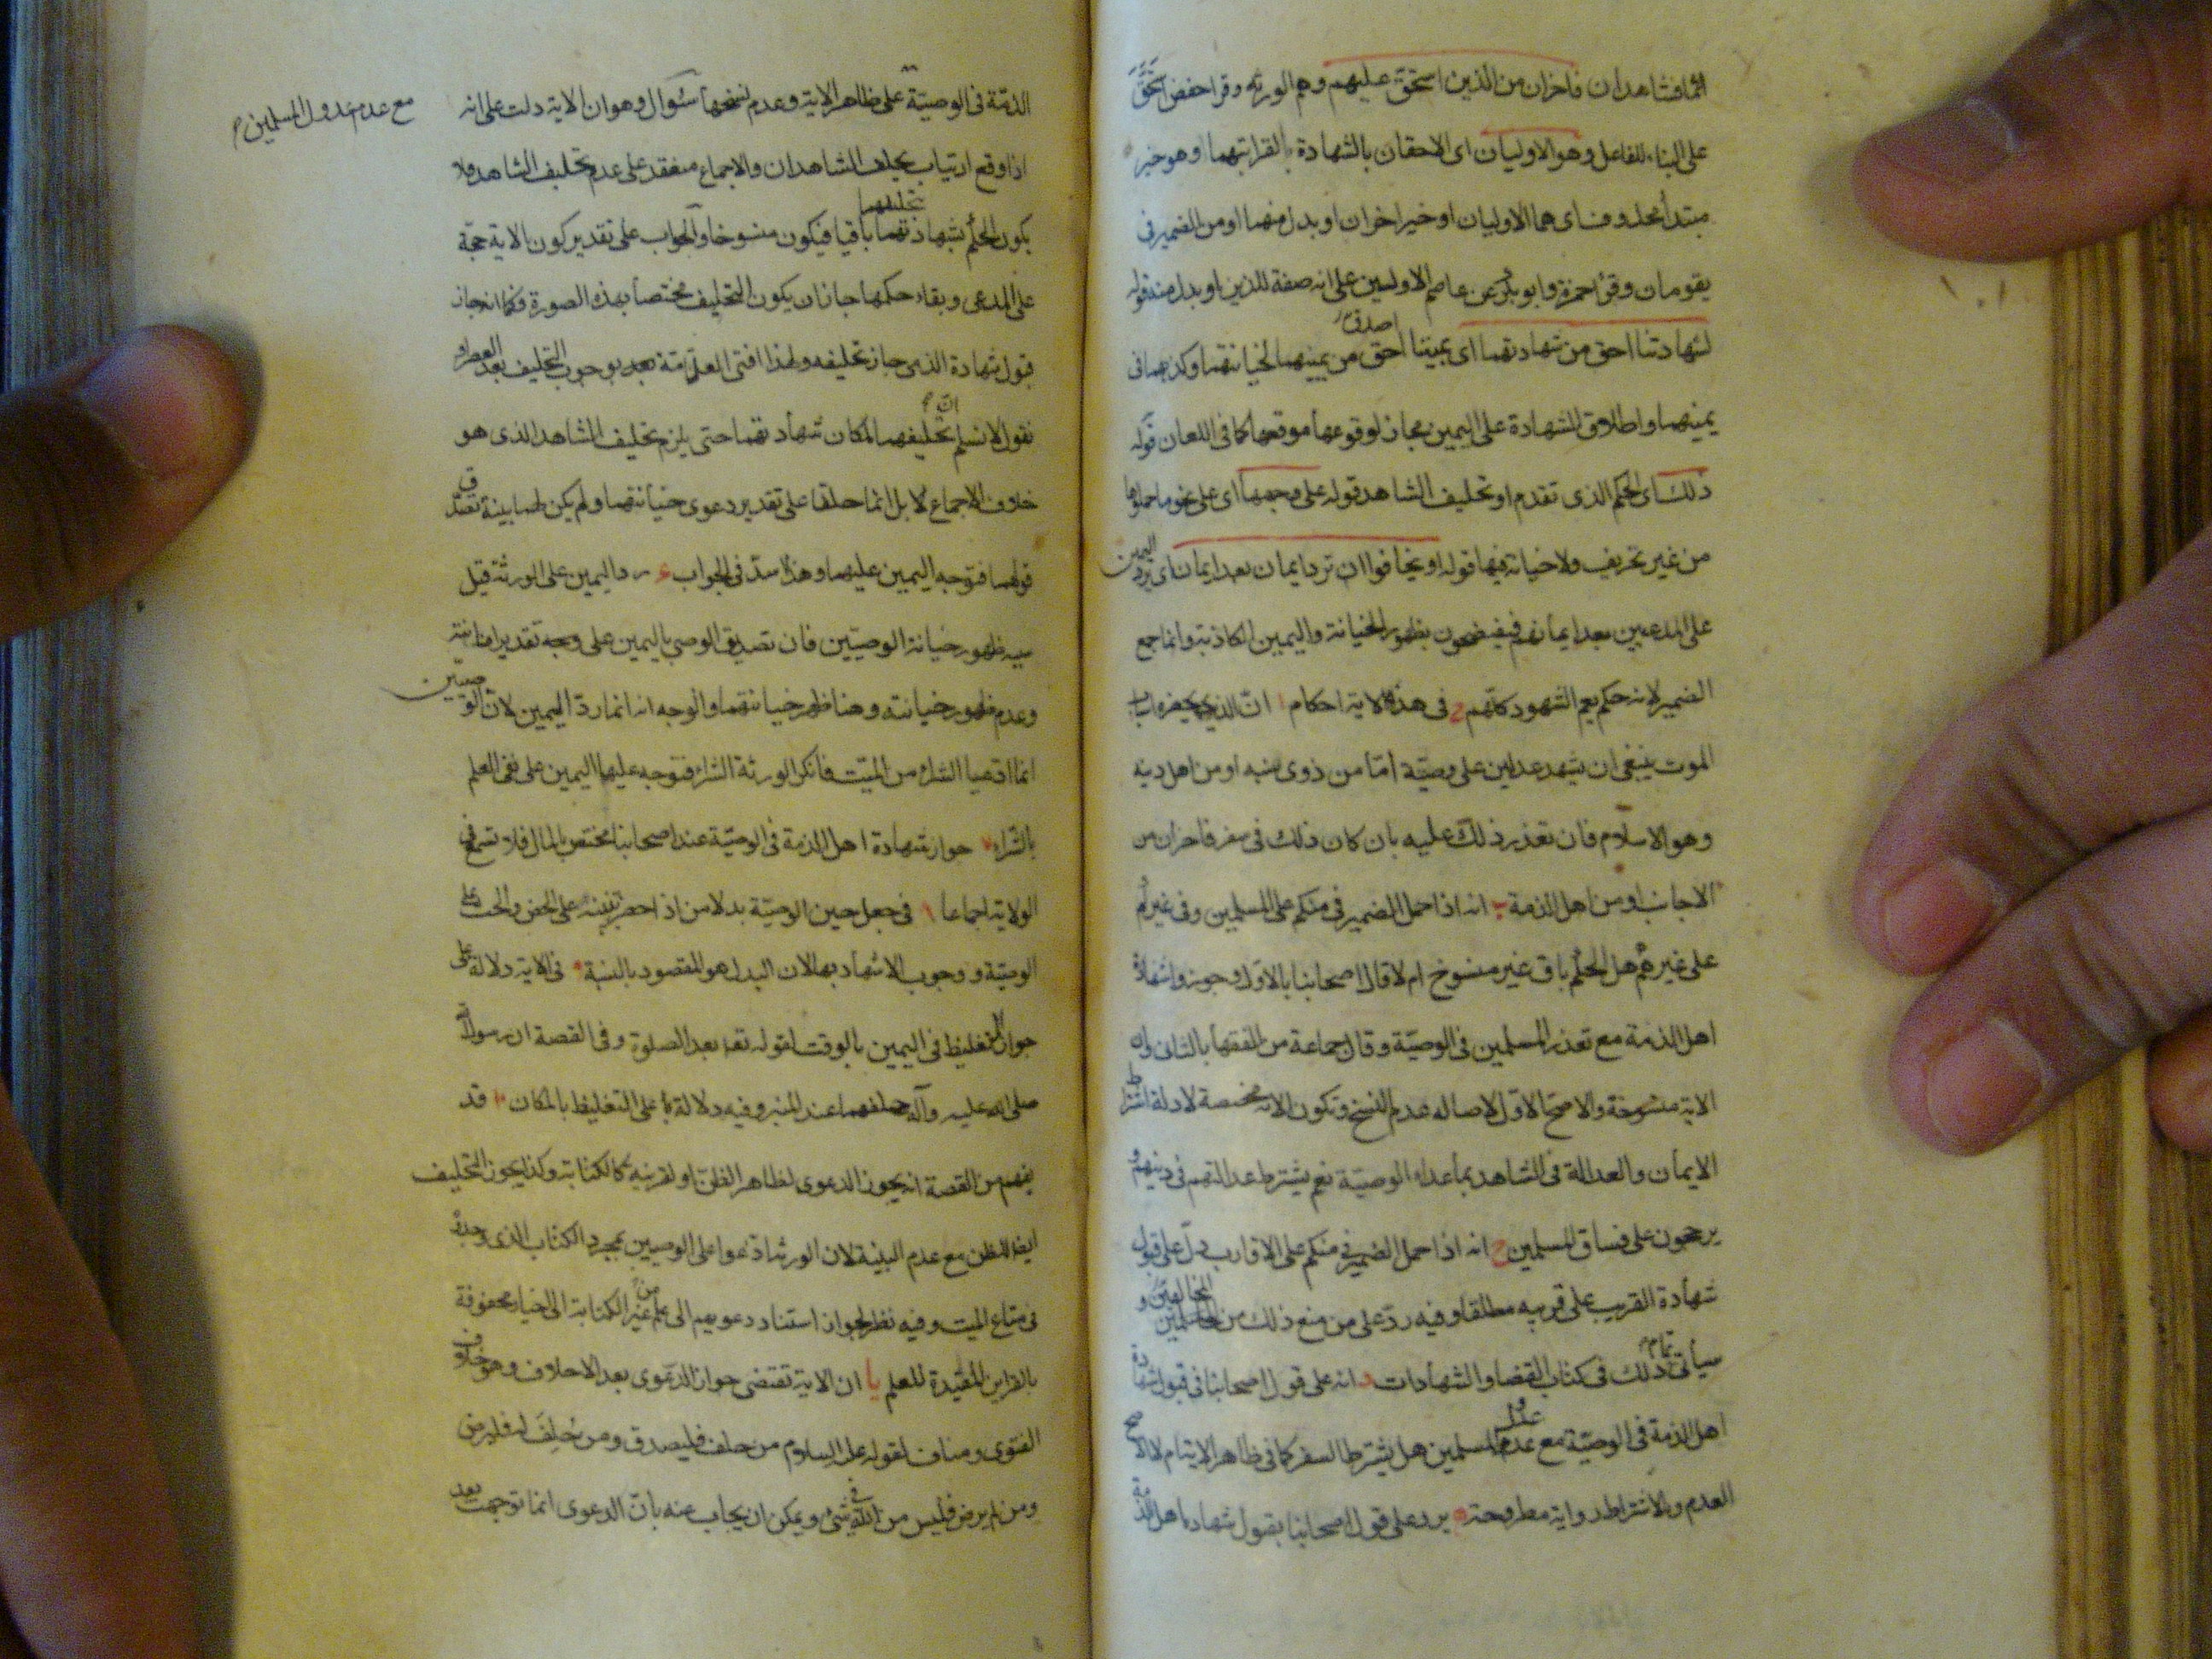 اثما فشاهدان فاخران من الذين استحق عليهم وهم الورثه وقرا حفص استحق
على البناء للفاعل وهو الاوليان اى الاحقان بالشهادة لقرابتهما وهو خبر
مبتدأ محذوف اى هما الاوليان او خبر اخران او بدل منهما او من الضمير فى
يقومان وقرئ حمزة وابو بكر عن عاصم الاولين على انه صفة للذين او بدل منه قوله
لشهادتنا احق من شهادتهما اى يميننا اصدق احق من يمينهما لخيانتهما وكذبهما فى
يمينهما واطلاق الشهادة على اليمين مجاز لوقوعها موقعها كما فى اللعان قوله
ذلك اى الحكم الذى تقدم او تحليف الشاهد قوله على وجهها اى على نحو ما حملوها
من غير تحريف ولا خيانة فيها قوله او يخافوا ان ترد ايمان بعد ايمانهم اى ترد اليمين
على المدعيين بعد ايمانهم فيفتضحون بظهور الخيانة واليمين الكاذبة وانما جمع
الضمير لانه حكم يعم الشهود كلهم فى هذه الاية احكام ا ان الذى يحضره اسباب
الموت ينبغى ان يشهد عدلين على وصيته اما من ذوى نسبه او من اهل دينه
وهو الاسلام فان تعذر ذلك عليه بان كان ذلك فى سفر فاخران من
الاجانب او من اهل الذمة ب انه اذا حمل الضمير فى منكم على المسلمين وفى غيركم
على غيرهم هل الحكم باق غير منسوخ ام لا قال اصحابنا بالاول وجوزوا شهادة
اهل الذمة مع تعذر المسلمين فى الوصية وقال جماعة من الفقها بالثانى وان
الاية منسوخة والاصح الاول لاصاله عدم النسخ وتكون الاية مخصصة لادلة اشتراط
الايمان والعدالة فى الشاهد بما عداء الوصية نعم يشترط عدالتهم فى دينهم و
يرجحون على فساق المسلمين ج انه اذا حمل الضمير فى منكم على الاقارب دل على قبول
شهادة القريب على قريبه مطلقا وفيه رد على من منع ذلك من المخالفين و
سيأتى تمام ذلك فى كتاب القضا والشهادات د انه على قول اصحابنا فى قبول شهادة
اهل الذمة فى الوصية مع عدم عدول المسلمين هل يشترط السفر كما فى ظاهر الاية ام لا الاصح
العدم وبالاشتراط رواية مطروحة ه يرد على قول اصحابنا بقبول شهادة اهل الذمة
الذمة فى الوصية على ظاهر الاية وعدم نسخها سؤال وهو ان الاية دلت على انه
مع عدم عدول المسلمين
اذا وقع ارتياب يحلف الشاهدان والاجماع منعقد على عدم تحليف الشاهد فلا
يكون الحكم بتحليفهما باقيا فيكون منسوخا والجواب على تقدير كون الاية حجة
على المدعى وبقاء حكمها جاز ان يكون التحليف مختصا بهذه الصورة فكما انه جاز
قبول شهادة الذمى جاز تحليفه ولهذا افتى العلامة بوجوب التحليف بعد العصر او
نقول لا نسلم ان تحليفهما لمكان شهادتهما حتى يلزم تحليف الشاهد الذى هو
خلاف الاجماع لا بل انما حلفا على تقدير دعوى خيانتهما ولم يكن لهما بينة تصدق
قولهما فتوجه اليمين عليهما وهذا اسد فى الجواب رد اليمين على الورثة قيل
سببه ظهور خيانة الوصيين فان تصديق الوصى باليمين على وجه تقدير امانته
وعدم ظهور خيانته وهنا ظهر خيانتهما والوجه انه انما رد اليمين لان الوصيين
انما ادعيا الشراء من الميت فانكر الورثة الشراء فتوجه عليها اليمين على نفى العلم
بالشراء ٧ جواز شهادة اهل الذمة فى الوصية عند اصحابنا مختص بالمال فلا تسمع فى
الولاية اجماعا ٨ فى جعل حين الوصية بدلا من اذا حضر تنبيه على الحض والحث على
الوصية و وجوب الاشهاد بها لان البدل هو المقصود بالنسبة ٩ فى الاية دلالة على
جواز التغليظ فى اليمين بالوقت لقوله تعالى بعد الصلوة وفى القصة ان رسول الله
صلى الله عليه وآله حلفهما عند المنبر وفيه دلالة على التغليظ بالمكان ١٠ قد
يفهم من القصة انه يجوز الدعوى لظاهر الظن او لقرينة كالكتابة وكذا يجوز التحليف
ايضا للظن مع عدم البينة لان الورثة ادعوا على الوصيين بمجرد الكتاب الذى وجدوه
فى متاع الميت وفيه نظر لجواز استناد دعويهم الى علم من غير الكتابة الى اخبار محفوفة
بالقراين المفيدة للعلم يا ان الاية تقتضى جواز الدعوى بعد الاحلاف وهو خلاف
الفتوى ومناف لقوله عليه السلام من حلف فليصدق ومن حُلِفَ له فليرض
ومن لم يرض فليس من الله فى شئ ويمكن ان يجاب عنه بان الدعوى انما توجهت بعد